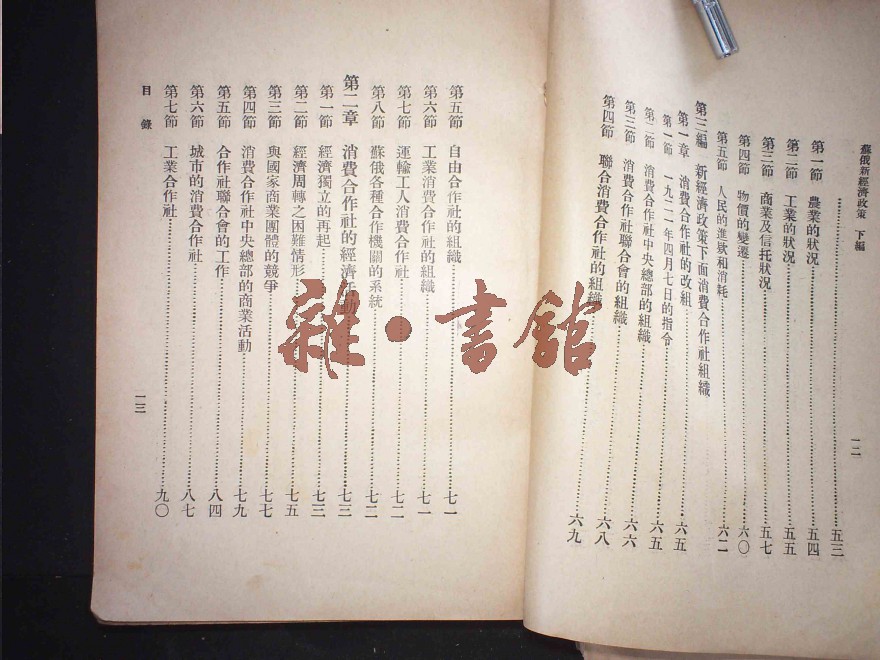 蘇俄新經濟政策 下編
一二
……五三
第一節 農業的狀況……五四
第二節 工業的狀況……五五
第三節 商業及信托狀況……五七
第四節 物價的變遷……六〇
第五節 人民的進款和消耗……六二
第三編 新經濟政策下面消費合作社組織
第一章 消費合作社的改組……六五
第一節 一九二一年四月七日的指令……六五
第二節 消費合作社中央總部的組織……六六
第三節 消費合作社聯合會的組織……六八
第四節 聯合消費合作社的組織……六九
第五節 自由合作社的組織……七一
第六節 工業消費合作社的組織……七一
第七節 運輸工人消費合作社……七二
第八節 蘇俄各種合作機關的系統……七二
第二章 消費合作社的經濟活動……七三
第一節 經濟獨立的再起……七三
第二節 經濟周轉之困難情形……七五
第三節 與國家商業團體的競爭……七七
第四節 消費合作社中央總部的商業活動……七九
第五節 合作社聯合會的工作……八四
第六節 城市的消費合作社……八七
第七節 工業合作社……九〇
目錄
一三
雜·書館